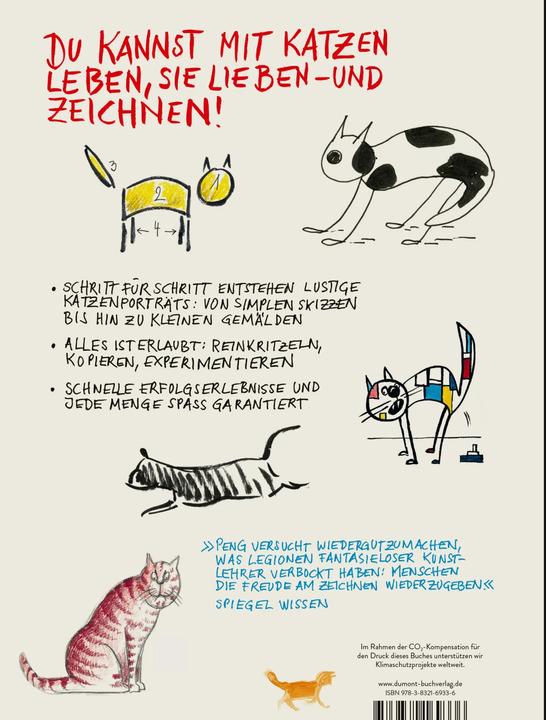 DU KANNST MIT KATZEN
LEBEN, SIE LIEBEN – UND
ZEICHNEN!
3
2
1
← 4 →
• SCHRITT FÜR SCHRITT ENTSTEHEN LUSTIGE
KATZENPORTRÄTS: VON SIMPLEN SKIZZEN
BIS HIN ZU KLEINEN GEMÄLDEN
• ALLES IST ERLAUBT: REINKRITZELN,
KOPIEREN, EXPERIMENTIEREN
• SCHNELLE ERFOLGSERLEBNISSE UND
JEDE MENGE SPASS GARANTIERT
»PENG VERSUCHT WIEDERGUTZUMACHEN,
WAS LEGIONEN FANTASIELOSER KUNST-
LEHRER VERBOCKT HABEN: MENSCHEN
DIE FREUDE AM ZEICHNEN WIEDERZUGEBEN«
SPIEGEL WISSEN
Im Rahmen der CO₂-Kompensation für
den Druck dieses Buches unterstützen wir
Klimaschutzprojekte weltweit.
www.dumont-buchverlag.de
ISBN 978-3-8321-6933-6